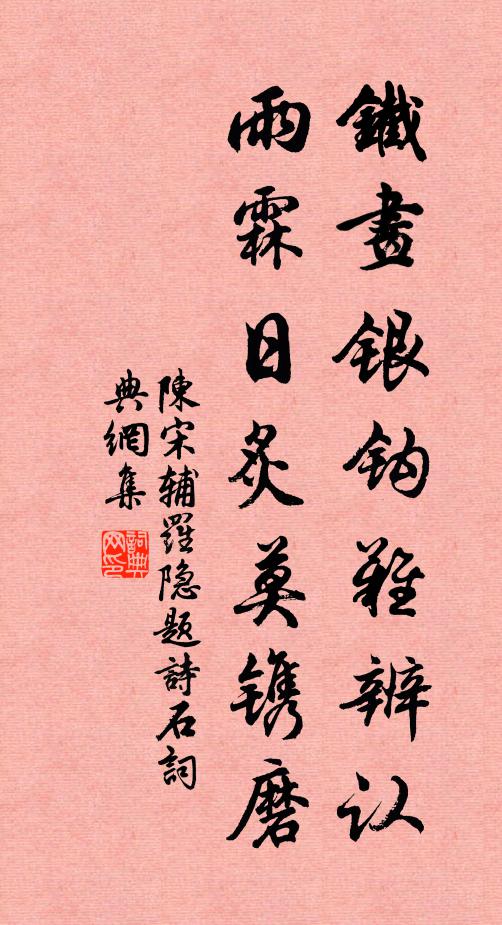 鐵畫銀鈎難辨认
雨霖日炙莫镌磨
陳宋辅羅隐題詩石詞
典網集
詞典网印